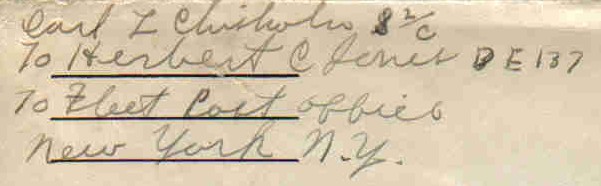 Earl L Chisholm S 2/c
To Herbert C Jones DE 137
To Fleet Post office
New York N.Y.